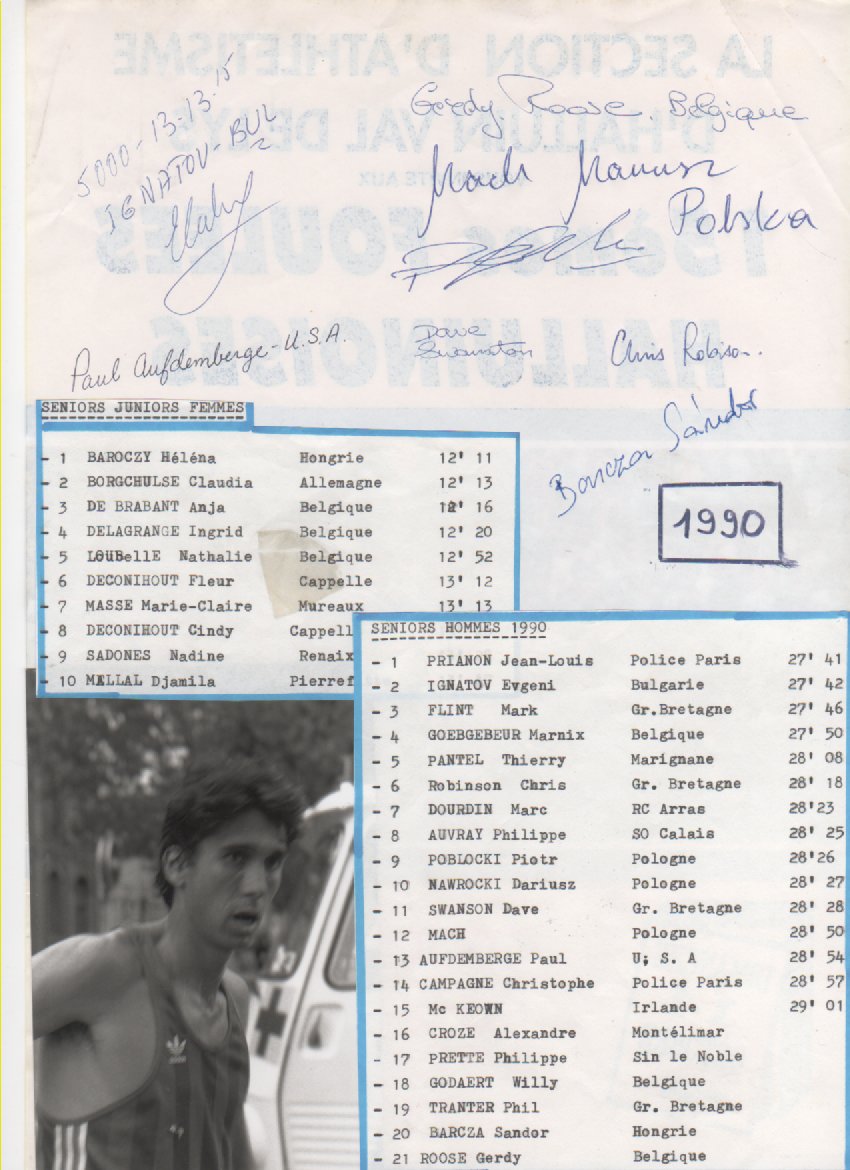 LA SECTION D'ATHLETISME
D'HALLUIN VAL DE LYS
15èmes FOULEES
HALLUINOISES
5000-13-13-15
IGNATOV-BUL
Gerdy Roose Belgique
Mach Mariusz
Polska
Paul Aufdemberge-U.S.A.
Dave
Swanston
Chris Robison.
Barcza Sándor
1990
SENIORS JUNIORS FEMMES
- 1 BAROCZY Héléna Hongrie 12' 11
- 2 BORGCHULSE Claudia Allemagne 12' 13
- 3 DE BRABANT Anja Belgique 12' 16
- 4 DELAGRANGE Ingrid Belgique 12' 20
- 5 LOUBelLE Nathalie Belgique 12' 52
- 6 DECONIHOUT Fleur Cappelle 13' 12
- 7 MASSE Marie-Claire Mureaux 13' 13
- 8 DECONIHOUT Cindy Cappell
- 9 SADONES Nadine Renaix
- 10 MELLAL Djamila Pierref
SENIORS HOMMES 1990
- 1 PRIANON Jean-Louis Police Paris 27' 41
- 2 IGNATOV Evgeni Bulgarie 27' 42
- 3 FLINT Mark Gr.Bretagne 27' 46
- 4 GOEBGEBEUR Marnix Belgique 27' 50
- 5 PANTEL Thierry Marignane 28' 08
- 6 Robinson Chris Gr. Bretagne 28' 18
- 7 DOURDIN Marc RC Arras 28'23
- 8 AUVRAY Philippe SO Calais 28' 25
- 9 POBLOCKI Piotr Pologne 28'26
- 10 NAWROCKI Dariusz Pologne 28' 27
- 11 SWANSON Dave Gr. Bretagne 28' 28
- 12 MACH Pologne 28' 50
- 13 AUFDEMBERGE Paul U; S. A 28' 54
- 14 CAMPAGNE Christophe Police Paris 28' 57
- 15 Mc KEOWN Irlande 29' 01
- 16 CROZE Alexandre Montélimar
- 17 PRETTE Philippe Sin le Noble
- 18 GODAERT Willy Belgique
- 19 TRANTER Phil Gr. Bretagne
- 20 BARCZA Sandor Hongrie
- 21 ROOSE Gerdy Belgique